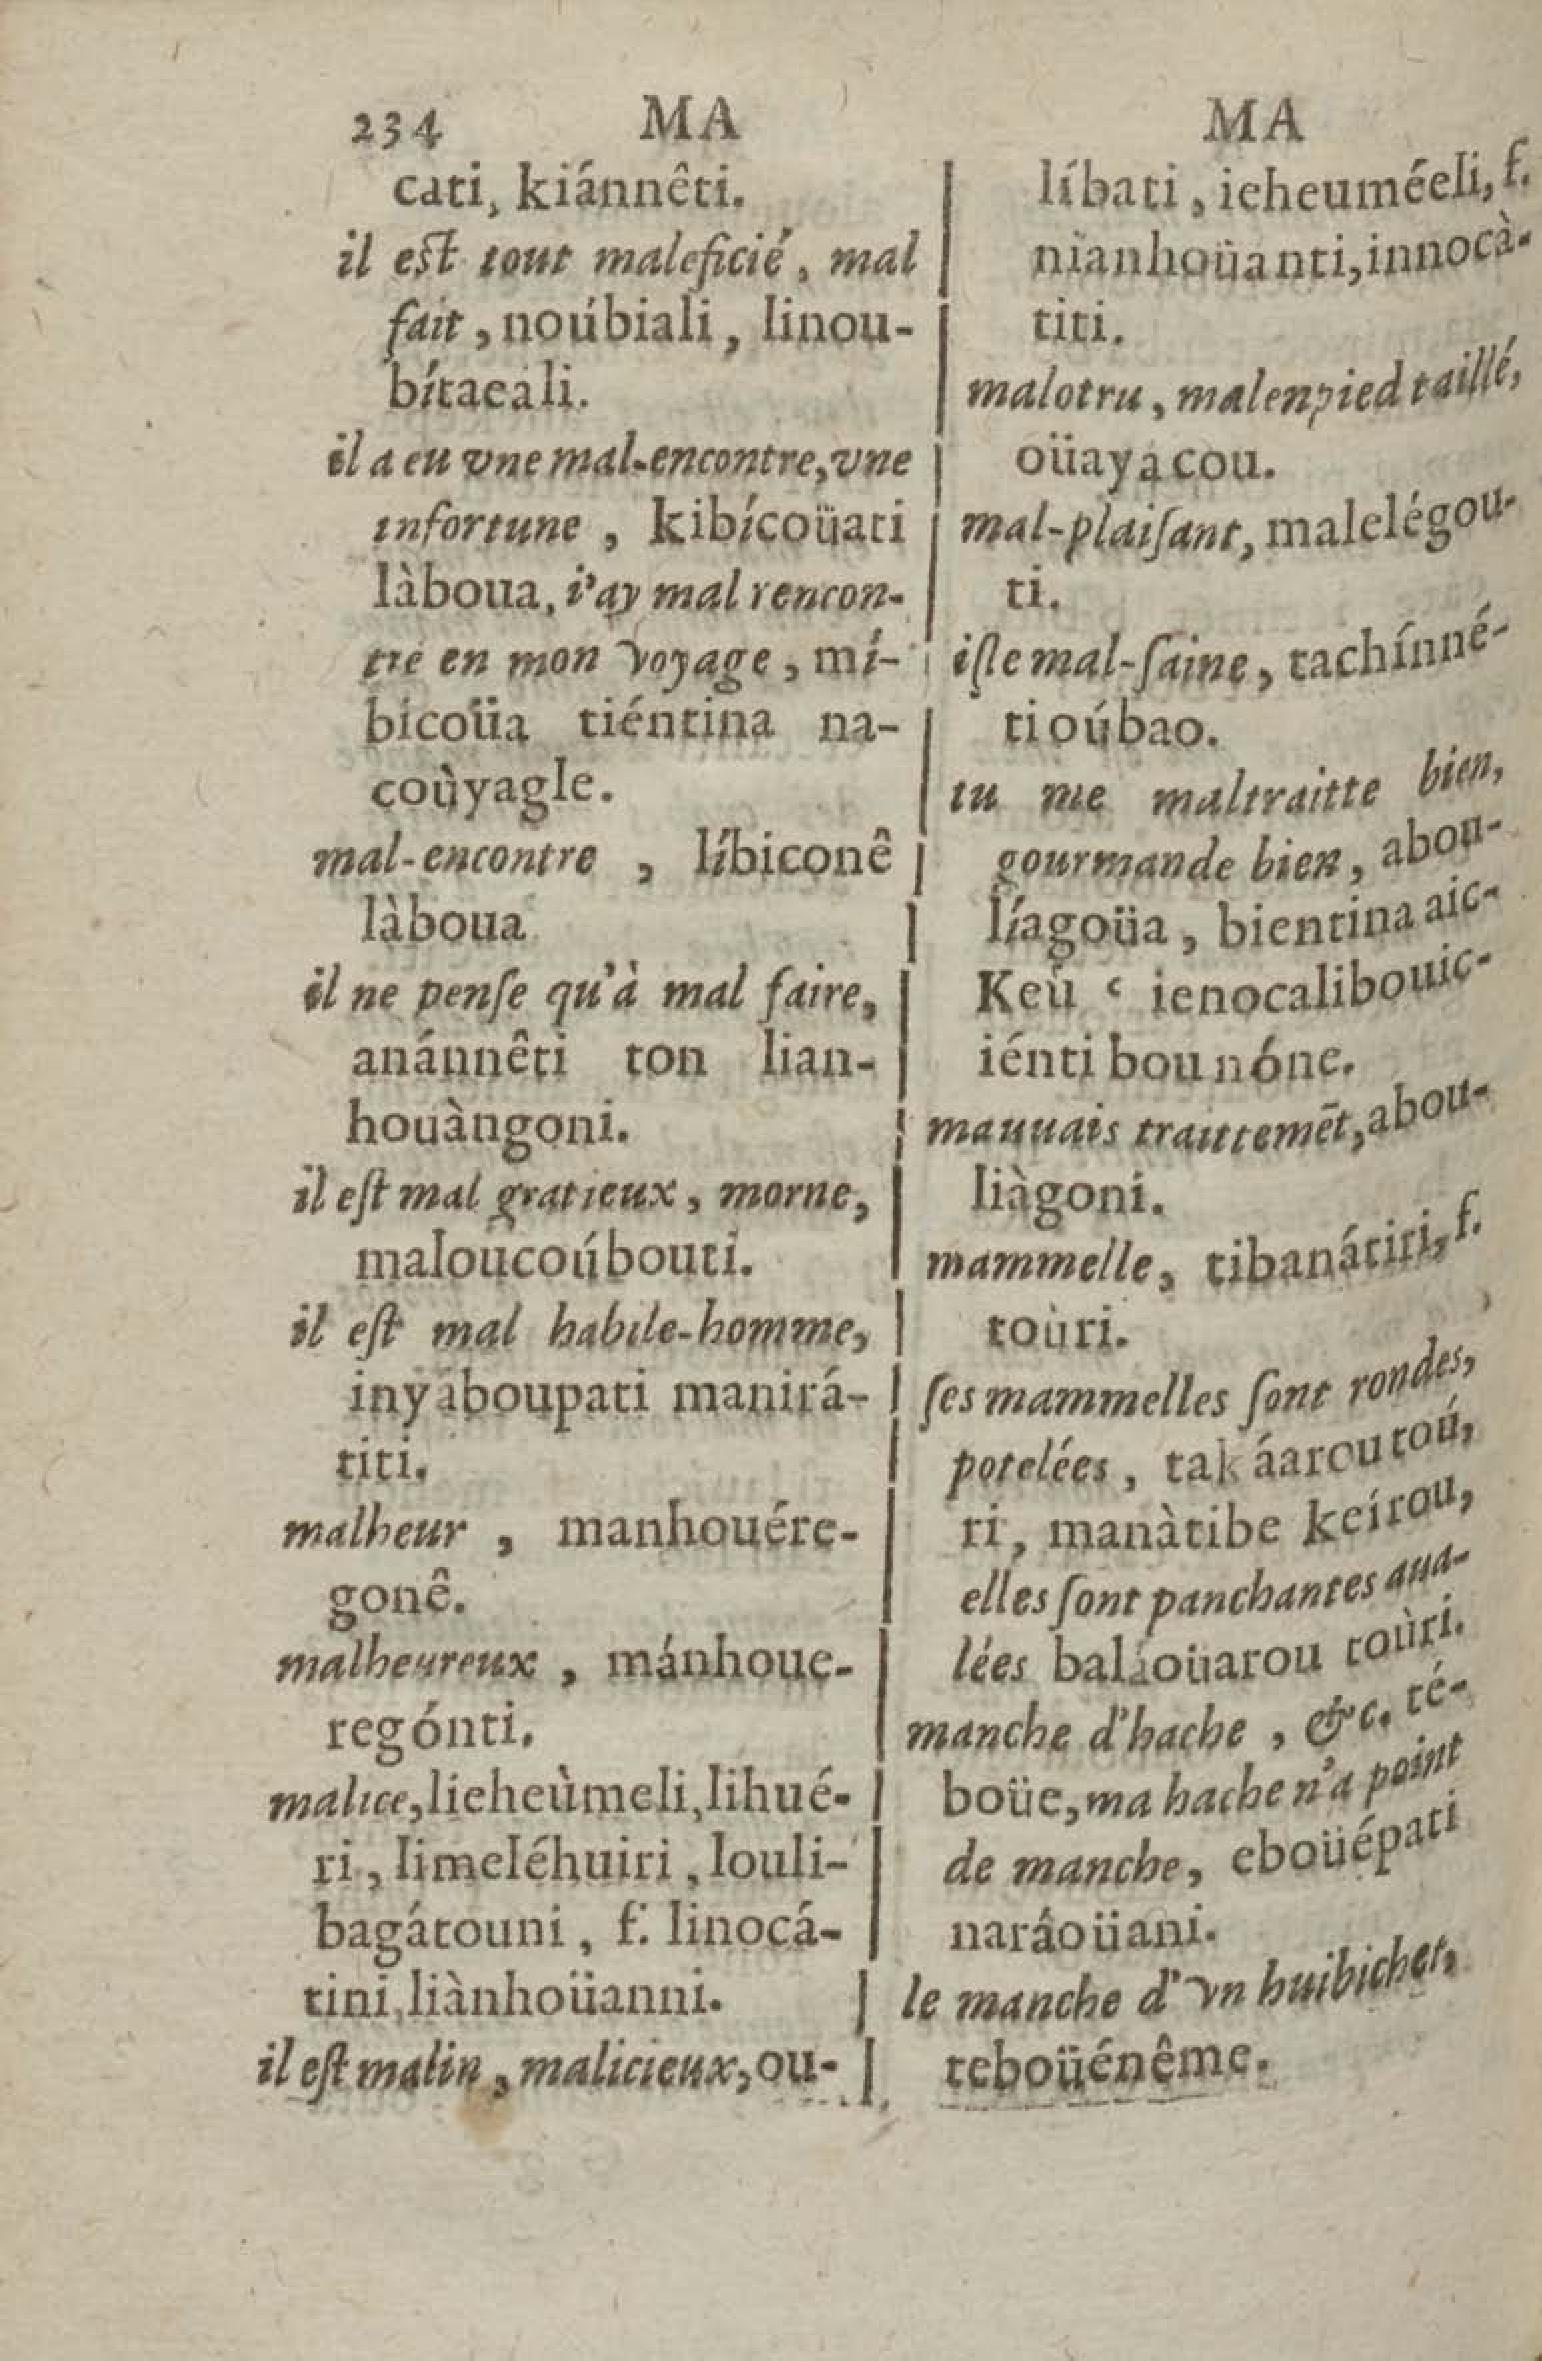 234 MA
cati, kiánnêti.
il est tout maleficié, mal
fait, noúbiali, linou-
bítacali.
il a eu vne mal-encontre, vne
infortune, kibícoüati
làboua, i'ay mal rencon-
tré en mon voyage, mí-
bícoüa tiéntina na-
coùyagle.
mal-encontre, líbiconê
làboua
il ne pense qu'à mal faire,
anánnêti ton lian-
houàngoni.
il eſt mal gratieux, morne,
maloucoúbouti.
il eſt mal habile-homme,
inyaboupati manirá-
titi.
malheur, manhouére-
gonê.
malheureux, mánhoue-
regónti.
malice, lieheùmeli, lihué-
ri, limeléhuiri, louli-
bagátouni, f. linocá-
tini, liànhoüanni.
il eſt malin, malicieux, ou-
MA
líbati, ieheuméeli, f.
nianhoüanti, innocà-
titi.
malotru, malenpied taillé,
oüayacou.
mal-plaiſant, malelégou-
ti.
iſle mal-ſaine, tachínné-
ti oúbao.
tu me maltraitte bien,
gourmande bien, abou-
líagoüa, bientina aic-
Keù c ienocalibouic-
iénti bou nóne.
mauuais traittemēt, abou-
liàgoni.
mammelle, tibanátiri, f.
toùri.
ſes mammelles ſont rondes,
potelées, takáaroutoú,
ri, manàtibe keírou,
elles ſont panchantes aua-
lées baláoüarou toùri.
manche d'hache, &c. té-
boüe, ma hache n'a point
de manche, eboüépati
naráoüani.
le manche d'vn huibichet,
teboüénême.